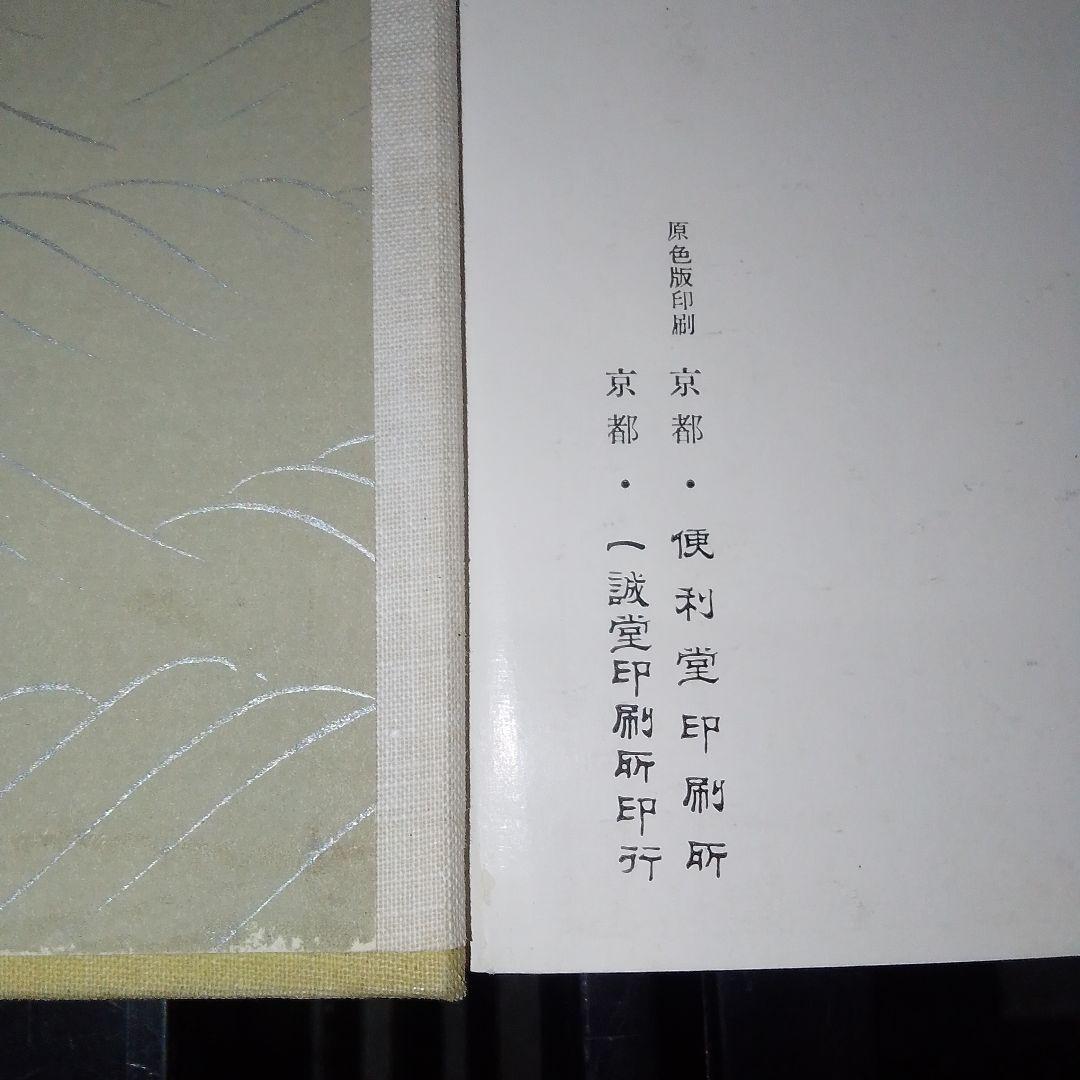 原色版印刷 京都・便利堂印刷所
京都・一誠堂印刷所印行